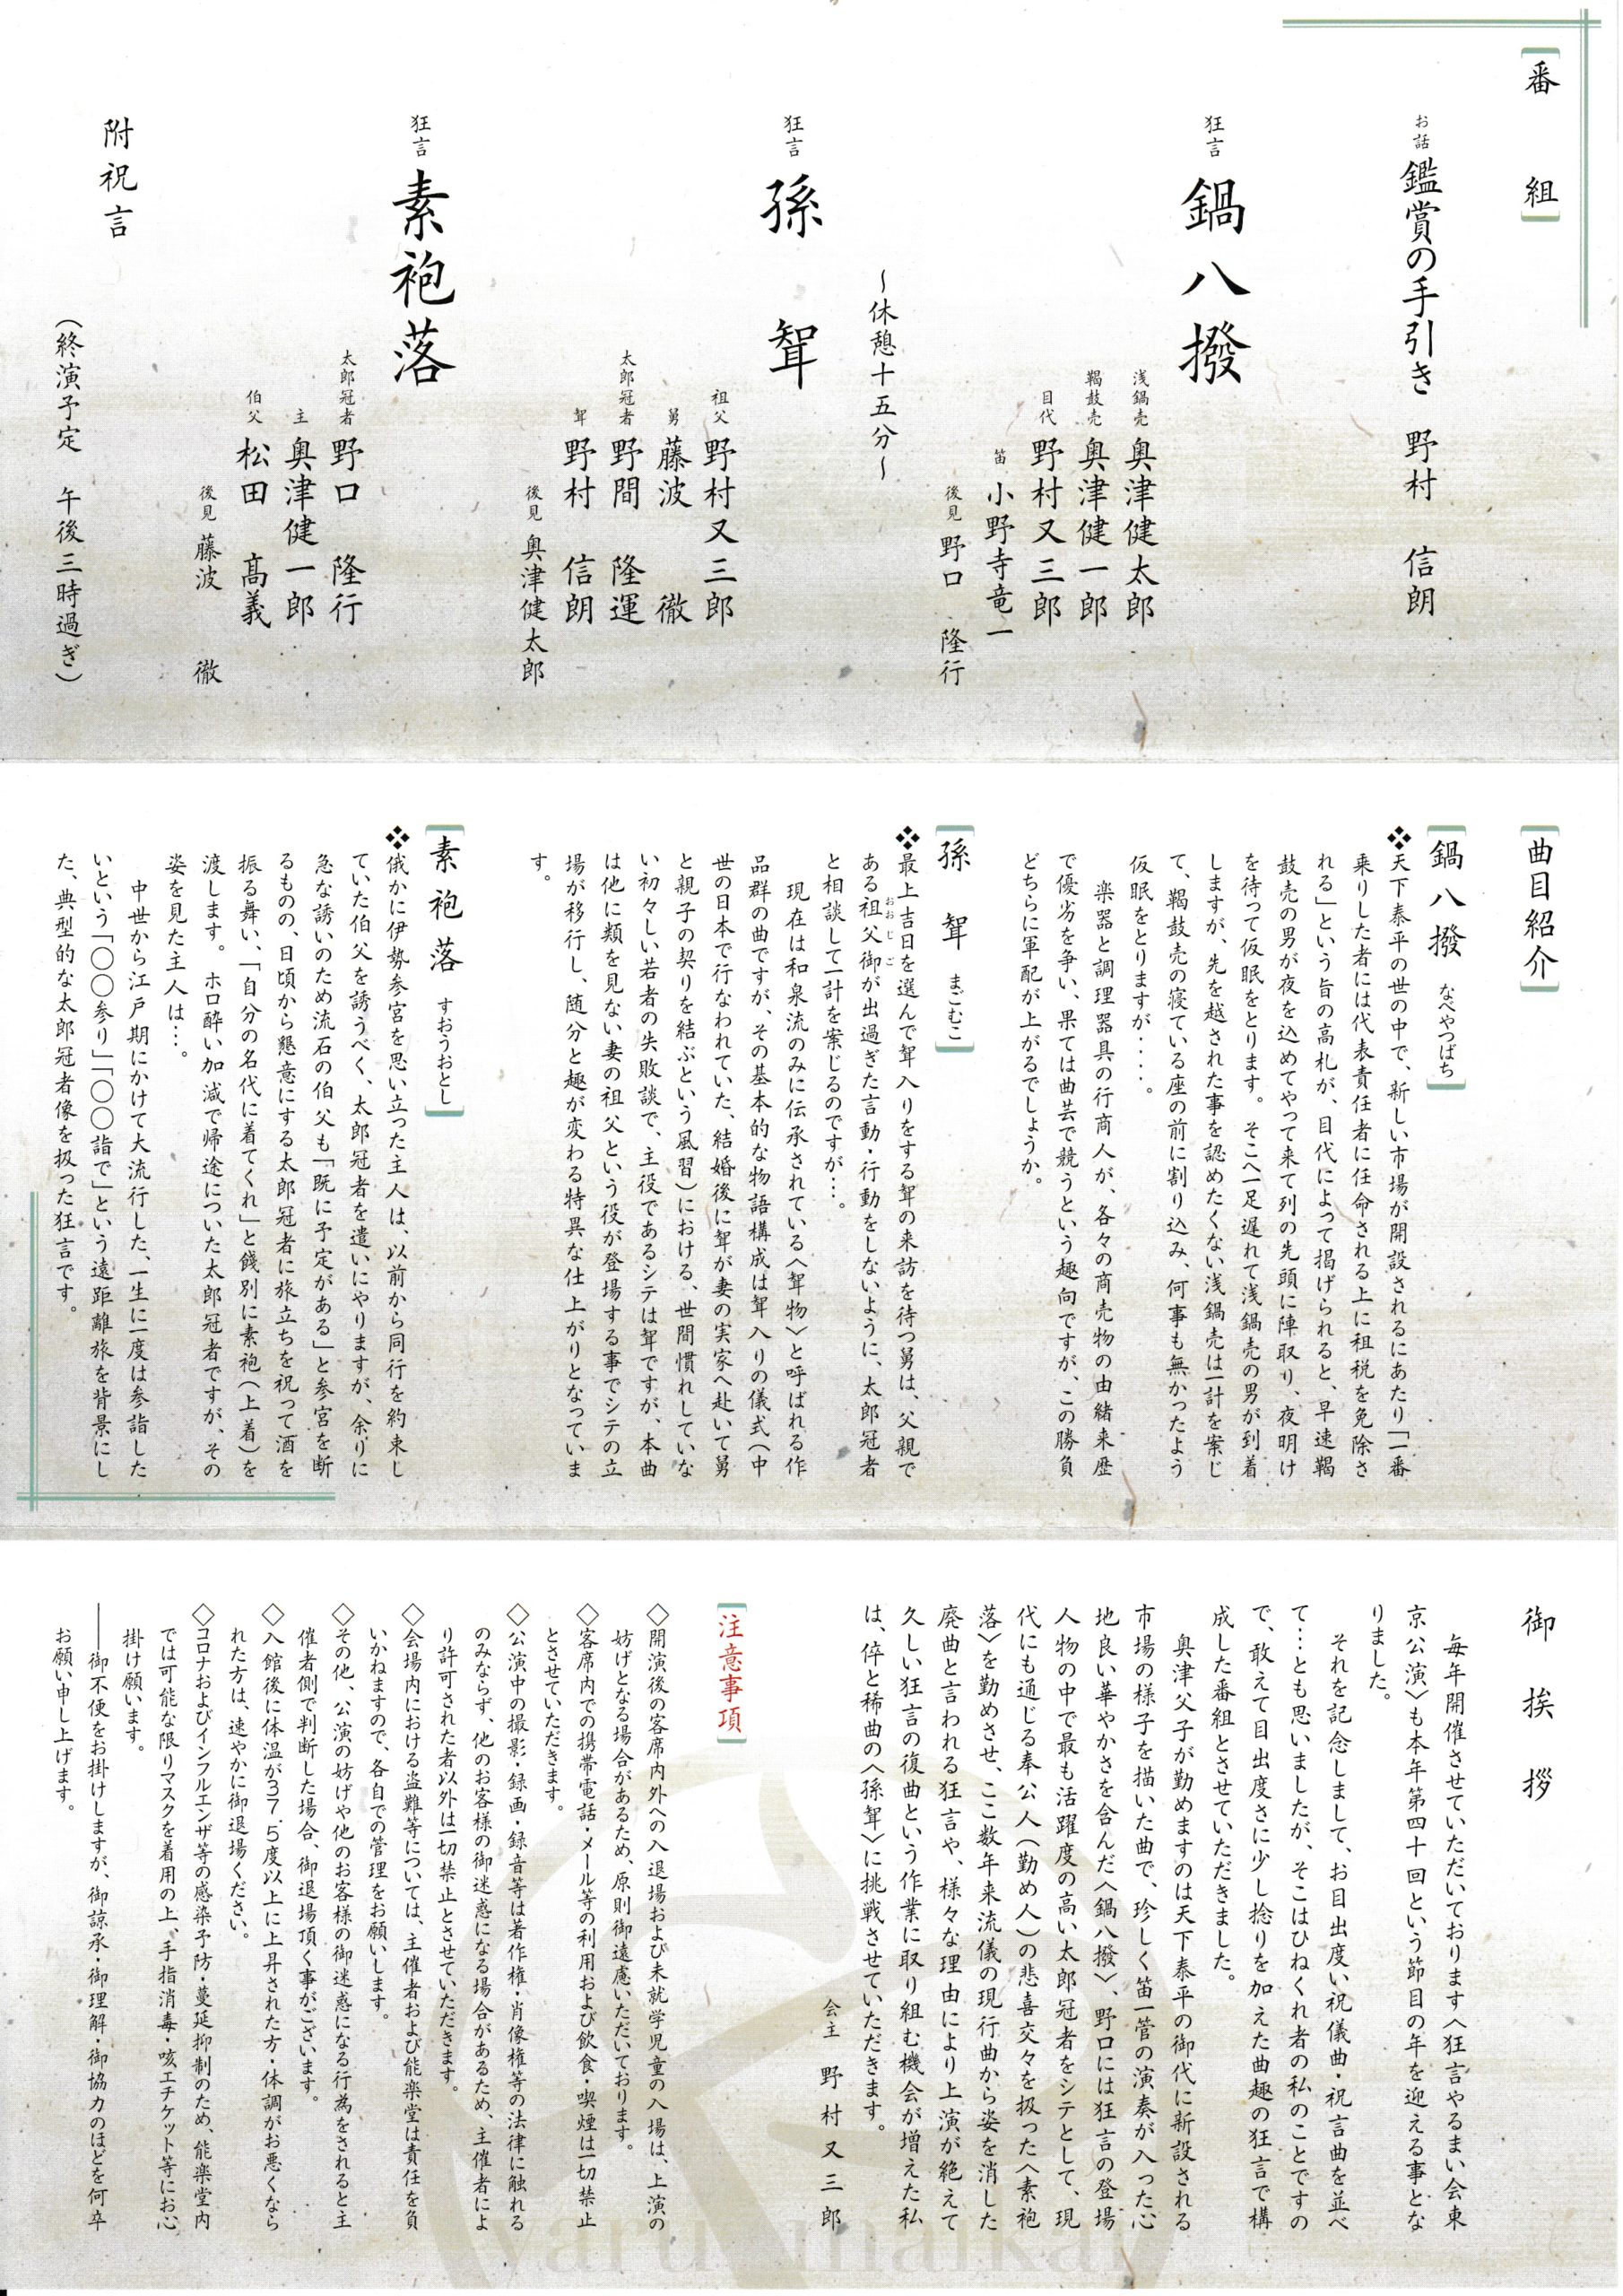 番組
お話 鑑賞の手引き 野村 信朗
狂言 鍋八撥
浅鍋売 奥津健太郎
鞨鼓売 奥津健一郎
目代 野村又三郎
笛 小野寺竜一
後見 野口 隆行
～休憩十五分～
狂言 孫聟
祖父 野村又三郎
舅 藤波 徹
太郎冠者 野間 隆運
聟 野村 信朗
後見 奥津健太郎
狂言 素袍落
太郎冠者 野口 隆行
主 奥津健一郎
伯父 松田 髙義
後見 藤波 徹
附祝言
（終演予定 午後三時過ぎ）
曲目紹介
鍋八撥 なべやつばち
❖天下泰平の世の中で、新しい市場が開設されるにあたり「一番
乗りした者には代表責任者に任命される上に租税を免除さ
れる」という旨の高札が、目代によって掲げられると、早速鞨
鼓売の男が夜を込めてやって来て列の先頭に陣取り、夜明け
を待って仮眠をとります。そこへ一足遅れて浅鍋売の男が到着
しますが、先を越された事を認めたくない浅鍋売は一計を案じ
て、鞨鼓売の寝ている座の前に割り込み、何事も無かったよう
仮眠をとりますが‥‥。
楽器と調理器具の行商人が、各々の商売物の由緒来歴
で優劣を争い、果ては曲芸で競うという趣向ですが、この勝負
どちらに軍配が上がるでしょうか。
孫聟 まごむこ
❖最上吉日を選んで聟入りをする聟の来訪を待つ舅は、父親で
ある祖父御が出過ぎた言動・行動をしないように、太郎冠者
おおじご
と相談して一計を案じるのですが…。
現在は和泉流のみに伝承されている〈聟物〉と呼ばれる作
品群の曲ですが、その基本的な物語構成は聟入りの儀式（中
世の日本で行なわれていた、結婚後に聟が妻の実家へ赴いて舅
と親子の契りを結ぶという風習）における、世間慣れしていな
い初々しい若者の失敗談で、主役であるシテは聟ですが、本曲
は他に類を見ない妻の祖父という役が登場する事でシテの立
場が移行し、随分と趣が変わる特異な仕上がりとなっていま
す。
素袍落 すおうおとし
❖俄かに伊勢参宮を思い立った主人は、以前から同行を約束し
ていた伯父を誘うべく、太郎冠者を遣いにやりますが、余りに
急な誘いのため流石の伯父も「既に予定がある」と参宮を断
るものの、日頃から懇意にする太郎冠者に旅立ちを祝って酒を
振る舞い、「自分の名代に着てくれ」と餞別に素袍（上着）を
渡します。ホロ酔い加減で帰途についた太郎冠者ですが、その
姿を見た主人は…。
中世から江戸期にかけて大流行した、一生に一度は参詣した
いという「〇〇参り」「〇〇詣で」という遠距離旅を背景にし
た、典型的な太郎冠者像を扱った狂言です。
御挨拶
毎年開催させていただいております〈狂言やるまい会東
京公演〉も本年第四十回という節目の年を迎える事とな
りました。
それを記念しまして、お目出度い祝儀曲・祝言曲を並べ
て…とも思いましたが、そこはひねくれ者の私のことですの
で、敢えて目出度さに少し捻りを加えた曲趣の狂言で構
成した番組とさせていただきました。
奥津父子が勤めますのは天下泰平の御代に新設される
市場の様子を描いた曲で、珍しく笛一管の演奏が入った心
地良い華やかさを含んだ〈鍋八撥〉、野口には狂言の登場
人物の中で最も活躍度の高い太郎冠者をシテとして、現
代にも通じる奉公人（勤め人）の悲喜交々を扱った〈素袍
落〉を勤めさせ、ここ数年来流儀の現行曲から姿を消した
廃曲と言われる狂言や、様々な理由により上演が絶えて
久しい狂言の復曲という作業に取り組む機会が増えた私
は、倅と稀曲の〈孫聟〉に挑戦させていただきます。
会主 野村又三郎
注意事項
◇開演後の客席内外への入退場および未就学児童の入場は、上演の
妨げとなる場合があるため、原則御遠慮いただいております。
◇客席内での携帯電話・メール等の利用および飲食・喫煙は一切禁止
とさせていただきます。
◇公演中の撮影・録画・録音等は著作権・肖像権等の法律に触れる
のみならず、他のお客様の御迷惑になる場合があるため、主催者によ
り許可された者以外は一切禁止とさせていただきます。
◇会場内における盗難等については、主催者および能楽堂は責任を負
いかねますので、各自での管理をお願いします。
◇その他、公演の妨げや他のお客様の御迷惑になる行為をされると主
催者側で判断した場合、御退場頂く事がございます。
◇入館後に体温が37.5度以上に上昇された方・体調がお悪くなら
れた方は、速やかに御退場ください。
◇コロナおよびインフルエンザ等の感染予防・蔓延抑制のため、能楽堂内
では可能な限りマスクを着用の上、手指消毒・咳エチケット等にお心
掛け願います。
――御不便をお掛けしますが、御諒承・御理解・御協力のほどを何卒
お願い申し上げます。
yarumaikai